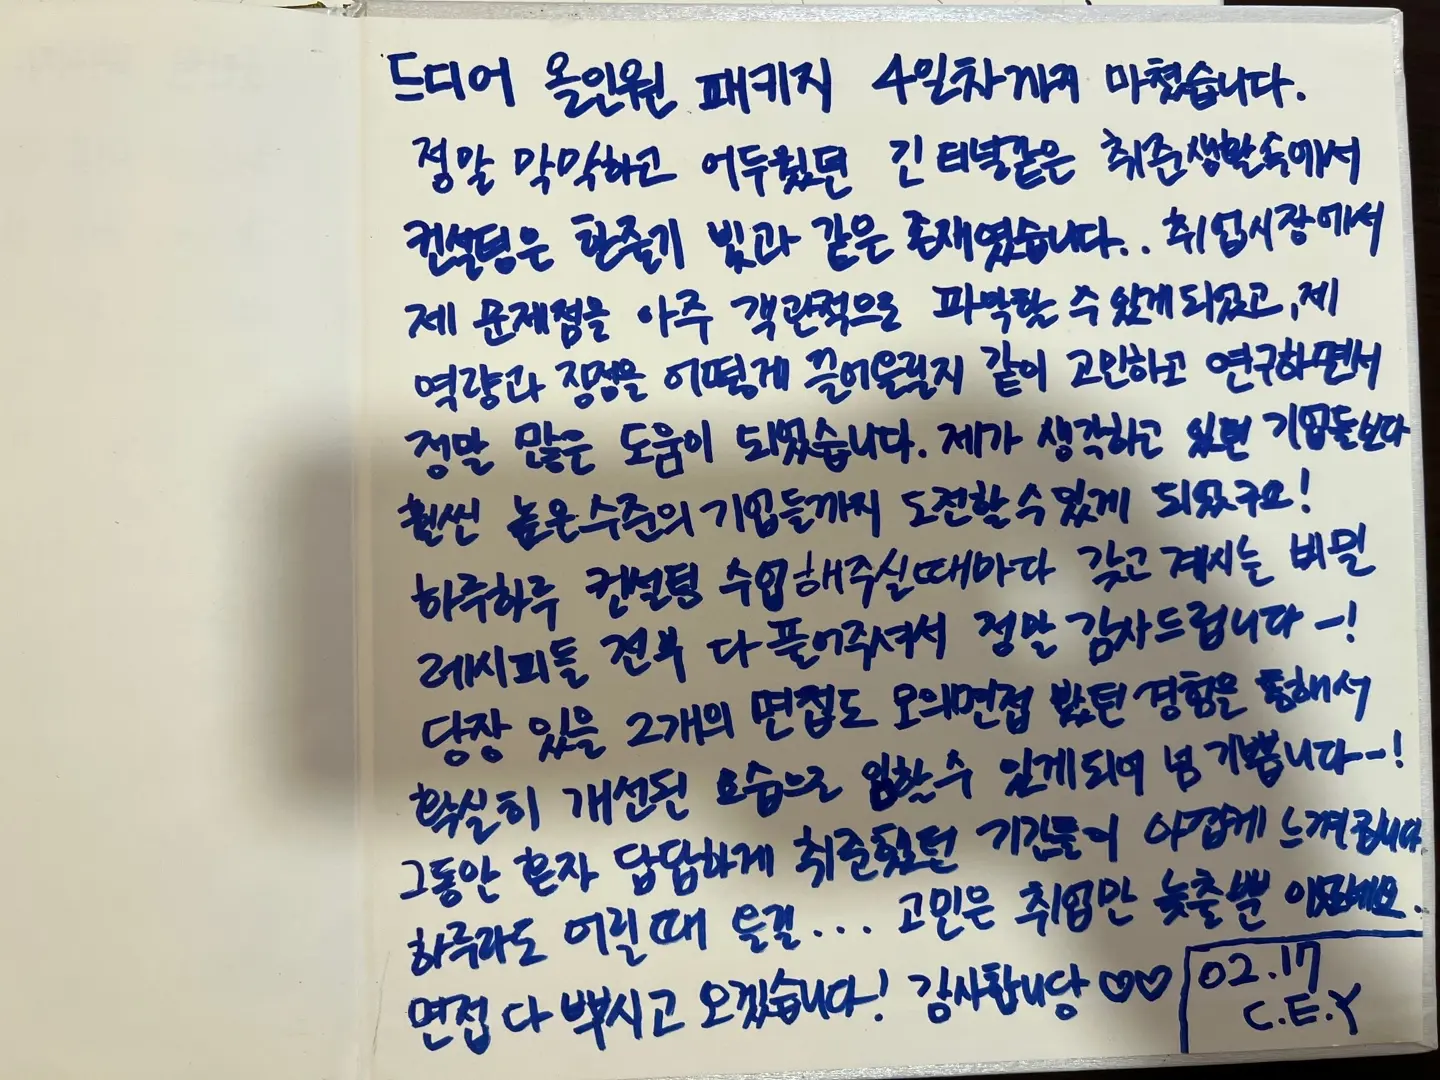 드디어 올인원 패키지 4일차까지 마쳤습니다.
정말 막막하고 어두웠던 긴 터널같은 취준생활속에서
컨설팅은 한줄기 빛과 같은 존재였습니다.. 취업시장에서
제 문제점을 아주 객관적으로 파악할 수 있게되었고, 제
역량과 장점을 어떻게 끌어올릴지 같이 고민하고 연구하면서
정말 많은 도움이 되었습니다. 제가 생각하고 있던 기업들보다
훨씬 높은수준의 기업들까지 도전할수 있게 되었구요!
하루하루 컨설팅 수업해주실때마다 갖고계시는 비밀
레시피들 전부 다 풀어주셔서 정말 감사드립니다-!
당장 있을 2개의 면접도 모의면접 봤던 경험을 통해서
확실히 개선된 모습으로 임할수 있게되어 넘 기쁩니다-!
그동안 혼자 답답하게 취준했던 기간들이 아깝게 느껴집니다
하루라도 어릴때 올걸... 고민은 취업만 늦출뿐 이네요.
면접 다 뿌시고 오겠습니다! 감사합니당 ♡♡
02.17
C.E.Y